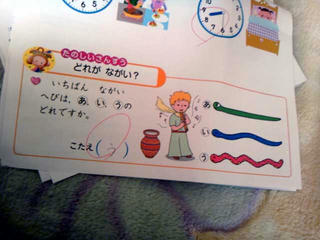 たのしいさんすう
どれが ながい?
いちばん ながい
へびは、あ、い、うの
どれですか。
こたえ(う)
あ
い
う